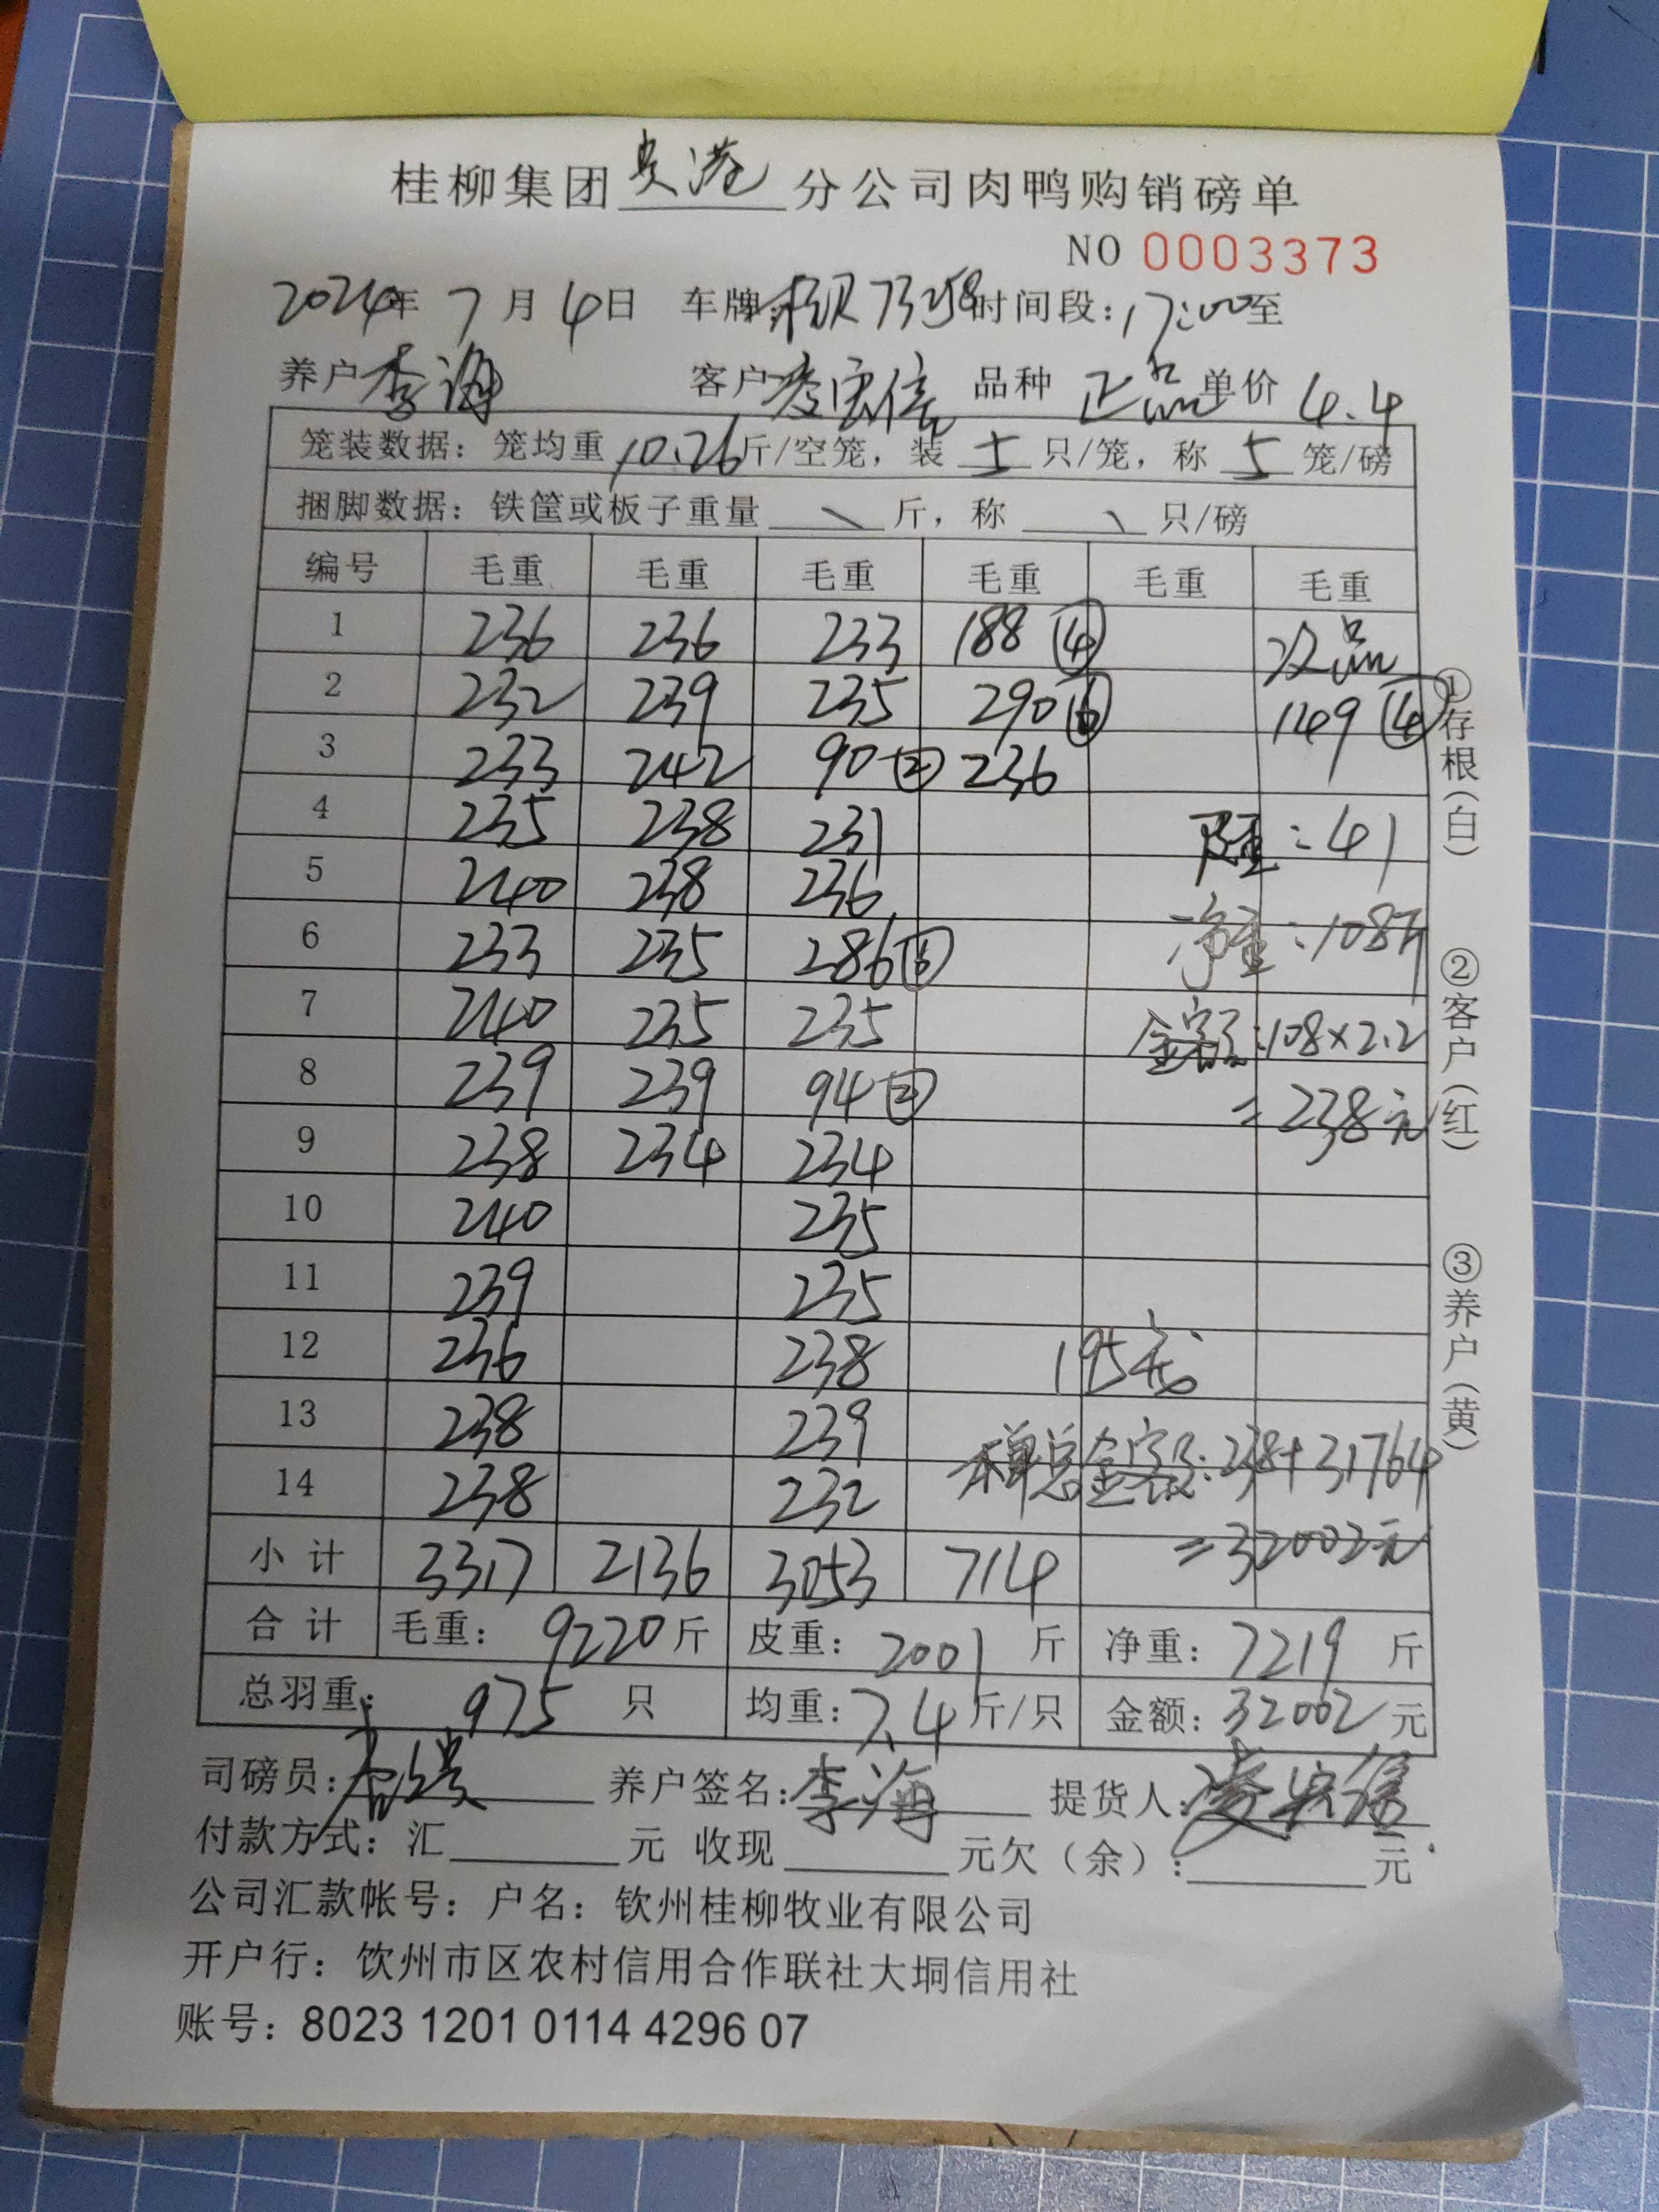 桂柳集团贵港分公司肉鸭购销磅单
NO 0003373
2024年 7月4日 车牌: 73258 时间段: 17:00至
养户 李海 客户 凌宏信 品种 正品 单价 4.4
笼装数据: 笼均重 10.26 斤/空笼, 装 5 只/笼, 称 5 笼/磅
捆脚数据: 铁筐或板子重量 \ 斤, 称 \ 只/磅
编号 毛重 毛重 毛重 毛重 毛重 毛重
1 236 236 233 188 ④ 次品
2 232 239 235 290 ⑥ 149 ④
3 233 242 90 ② 236
4 235 238 231 皮重: 41
5 240 238 236
6 233 235 286 ⑥ 净重: 108斤
7 240 235 235 金额: 108×2.2
8 239 239 94 ② =238元
9 238 234 234
10 240 235
11 239 235
12 236 238 195
13 238 239 本单总金额: 238+31764
14 238 232 =32002元
小计 3317 2136 3053 714
合计 毛重: 9220 斤 皮重: 2001 斤 净重: 7219 斤
总羽重: 975 只 均重: 7.4 斤/只 金额: 32002 元
司磅员: 养户签名: 李海 提货人: 凌宏信
付款方式: 汇 元 收现 元欠(余): 元
公司汇款帐号: 户名: 钦州桂柳牧业有限公司
开户行: 饮州市区农村信用合作联社大垌信用社
账号: 8023 1201 0114 4296 07
①存根(白) ②客户(红) ③养户(黄)